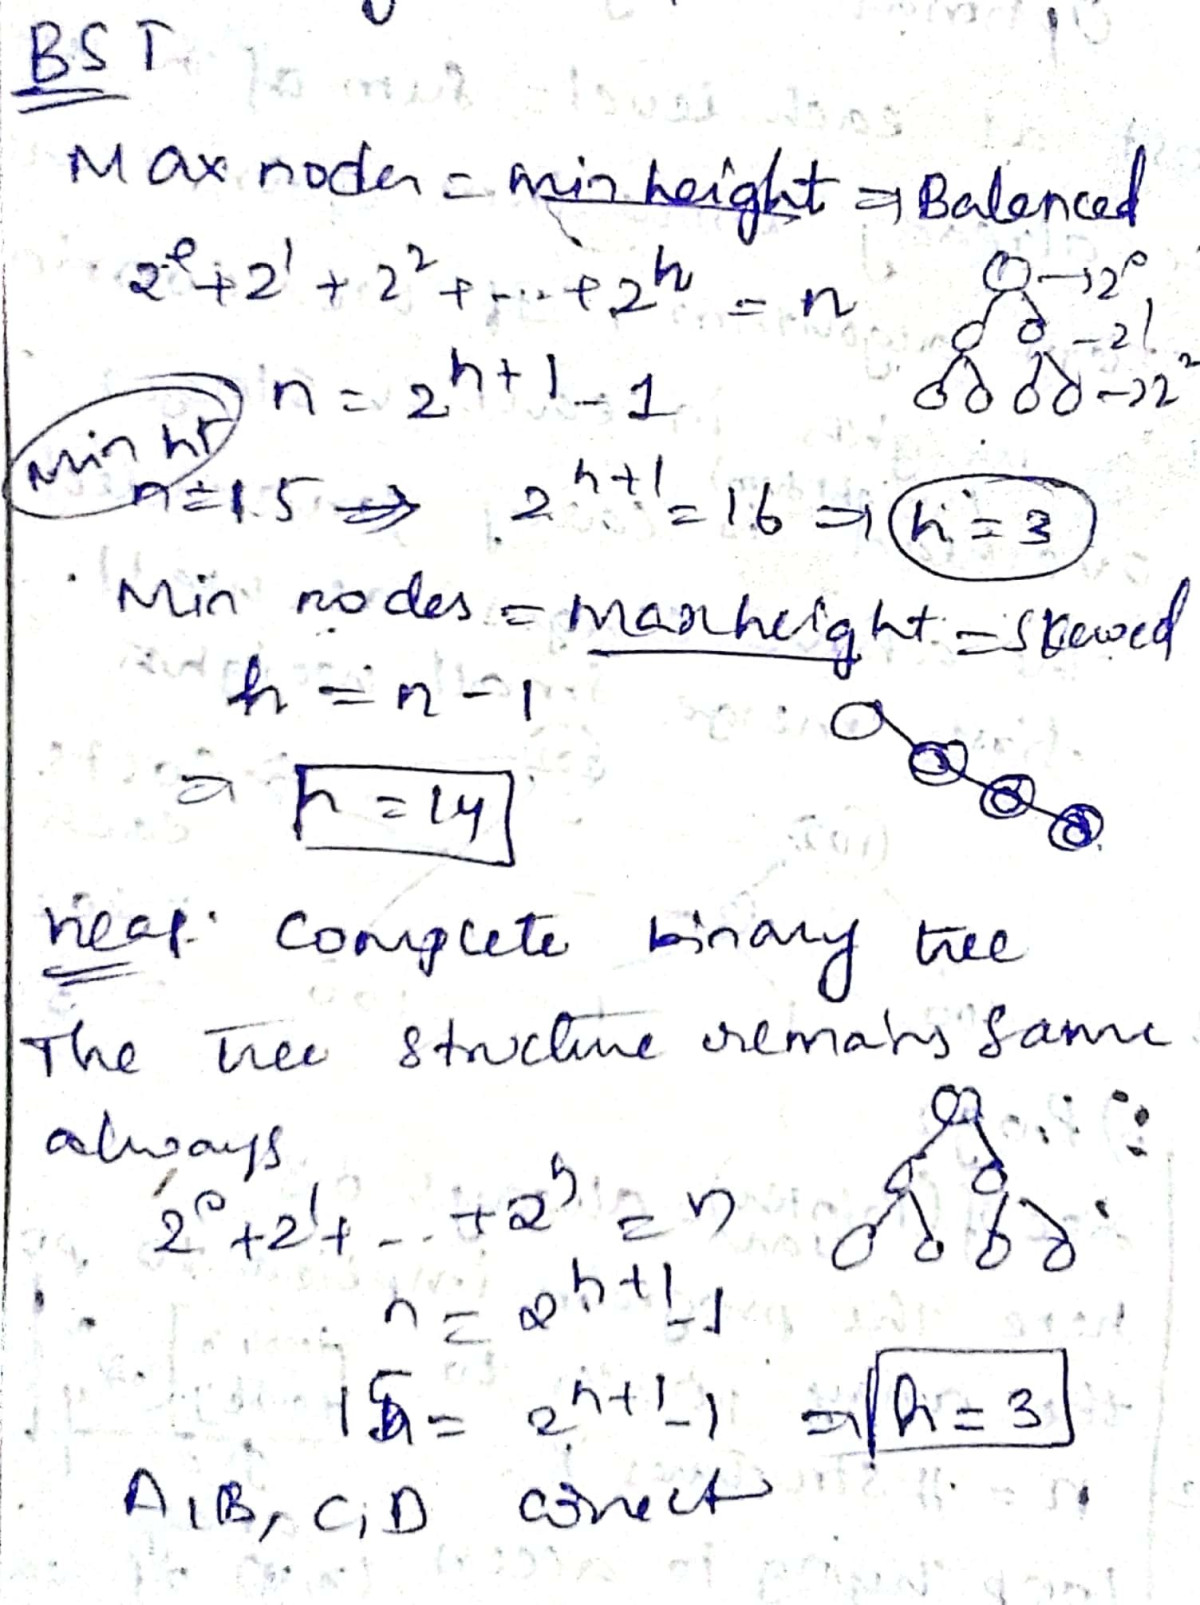 BST
Max nodes = min height ⇒ Balanced
2^0 + 2^1 + 2^2 + ... + 2^h = n
→ 2^0
→ 2^1
→ 2^2
n = 2^(h+1) - 1
min ht
n = 15 ⇒ 2^(h+1) = 16 ⇒ h = 3
Min nodes = max height = skewed
h = n - 1
⇒ h = 14
heap: complete binary tree
The tree structure remains same
always
2^0 + 2^1 + ... + 2^h = n
n = 2^(h+1) - 1
15 = 2^(h+1) - 1 ⇒ h = 3
A, B, C, D correct